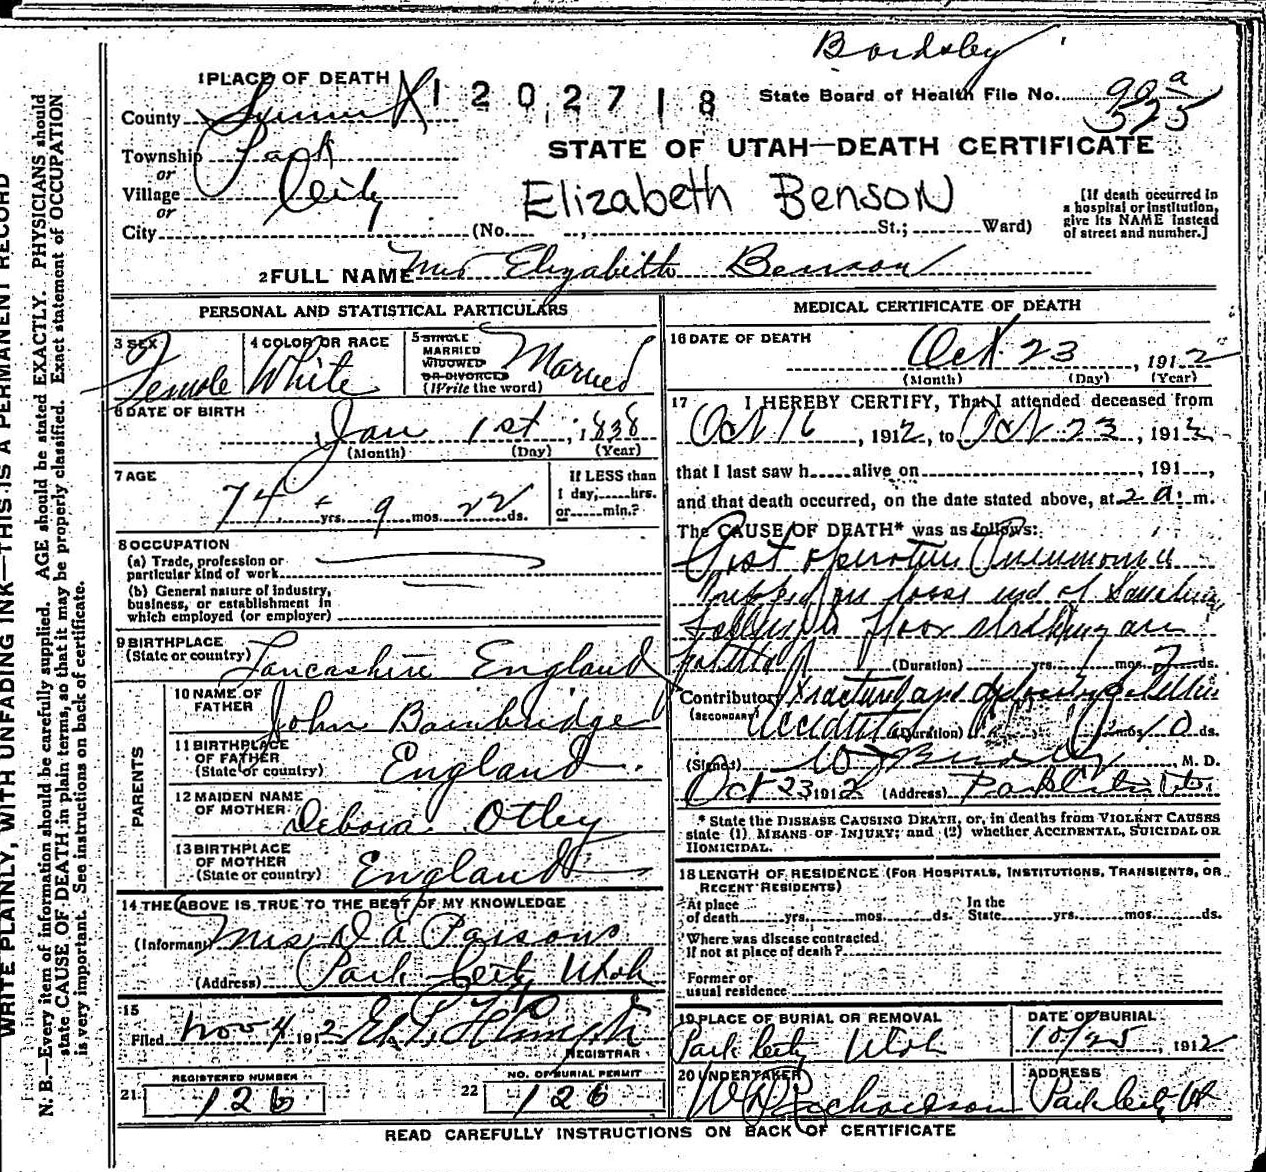 Bardsley
1 PLACE OF DEATH
1202718
State Board of Health File No. 90 a
525
County Summit
STATE OF UTAH—DEATH CERTIFICATE
Township Park
or
Village City
or
City (No. , St.; Ward)
Elizabeth Benson
[If death occurred in
a hospital or institution,
give its NAME instead
of street and number.]
2 FULL NAME Mrs Elizabeth Benson
PERSONAL AND STATISTICAL PARTICULARS
3 SEX
Female
4 COLOR OR RACE
White
5 SINGLE
MARRIED
WIDOWED
OR DIVORCED
(Write the word)
Married
6 DATE OF BIRTH
Jan 1st, 1838
(Month) (Day) (Year)
7 AGE
74 yrs. 9 mos. 22 ds.
If LESS than
1 day, hrs.
or min.?
8 OCCUPATION
(a) Trade, profession or
particular kind of work
(b) General nature of industry,
business, or establishment in
which employed (or employer)
9 BIRTHPLACE
(State or country) Lancashire England
PARENTS
10 NAME OF
FATHER John Bainbridge
11 BIRTHPLACE
OF FATHER
(State or country) England
12 MAIDEN NAME
OF MOTHER Debora Otley
13 BIRTHPLACE
OF MOTHER
(State or country) England
14 THE ABOVE IS TRUE TO THE BEST OF MY KNOWLEDGE
(Informant) Mrs D A Parsons
(Address) Park City Utah
15
Filed Nov 4 1912
REGISTRAR
REGISTERED NUMBER
21 126
NO. OF BURIAL PERMIT
22 126
MEDICAL CERTIFICATE OF DEATH
16 DATE OF DEATH
Oct. 23, 1912
(Month) (Day) (Year)
17 I HEREBY CERTIFY, That I attended deceased from
Oct 16, 1912, to Oct 23, 1912,
that I last saw h alive on , 191 ,
and that death occurred, on the date stated above, at 2 a. m.
The CAUSE OF DEATH* was as follows:
Post operative Pneumonia
on loose end of
floor striking on
patella (Duration) yrs. mos. 7 ds.
Contributory Fractured and patella
(SECONDARY) Accidental (Duration) mos. 10 ds.
(Signed) , M. D.
Oct 23 1912 (Address) Park City Ut.
* State the DISEASE CAUSING DEATH, or, in deaths from VIOLENT CAUSES
state (1) MEANS OF INJURY; and (2) whether ACCIDENTAL, SUICIDAL OR
HOMICIDAL.
18 LENGTH OF RESIDENCE (FOR HOSPITALS, INSTITUTIONS, TRANSIENTS, OR
RECENT RESIDENTS)
At place
of death yrs. mos. ds.
In the
State yrs. mos. ds.
Where was disease contracted
if not at place of death?
Former or
usual residence
19 PLACE OF BURIAL OR REMOVAL
Park City Utah
DATE OF BURIAL
10/25, 1912
20 UNDERTAKER
W D Richardson
ADDRESS
Park City Ut
READ CAREFULLY INSTRUCTIONS ON BACK OF CERTIFICATE
WRITE PLAINLY, WITH UNFADING INK—THIS IS A PERMANENT RECORD
N. B.—Every item of information should be carefully supplied. AGE should be stated EXACTLY. PHYSICIANS should
state CAUSE OF DEATH in plain terms, so that it may be properly classified. Exact statement of OCCUPATION
is very important. See instructions on back of certificate.